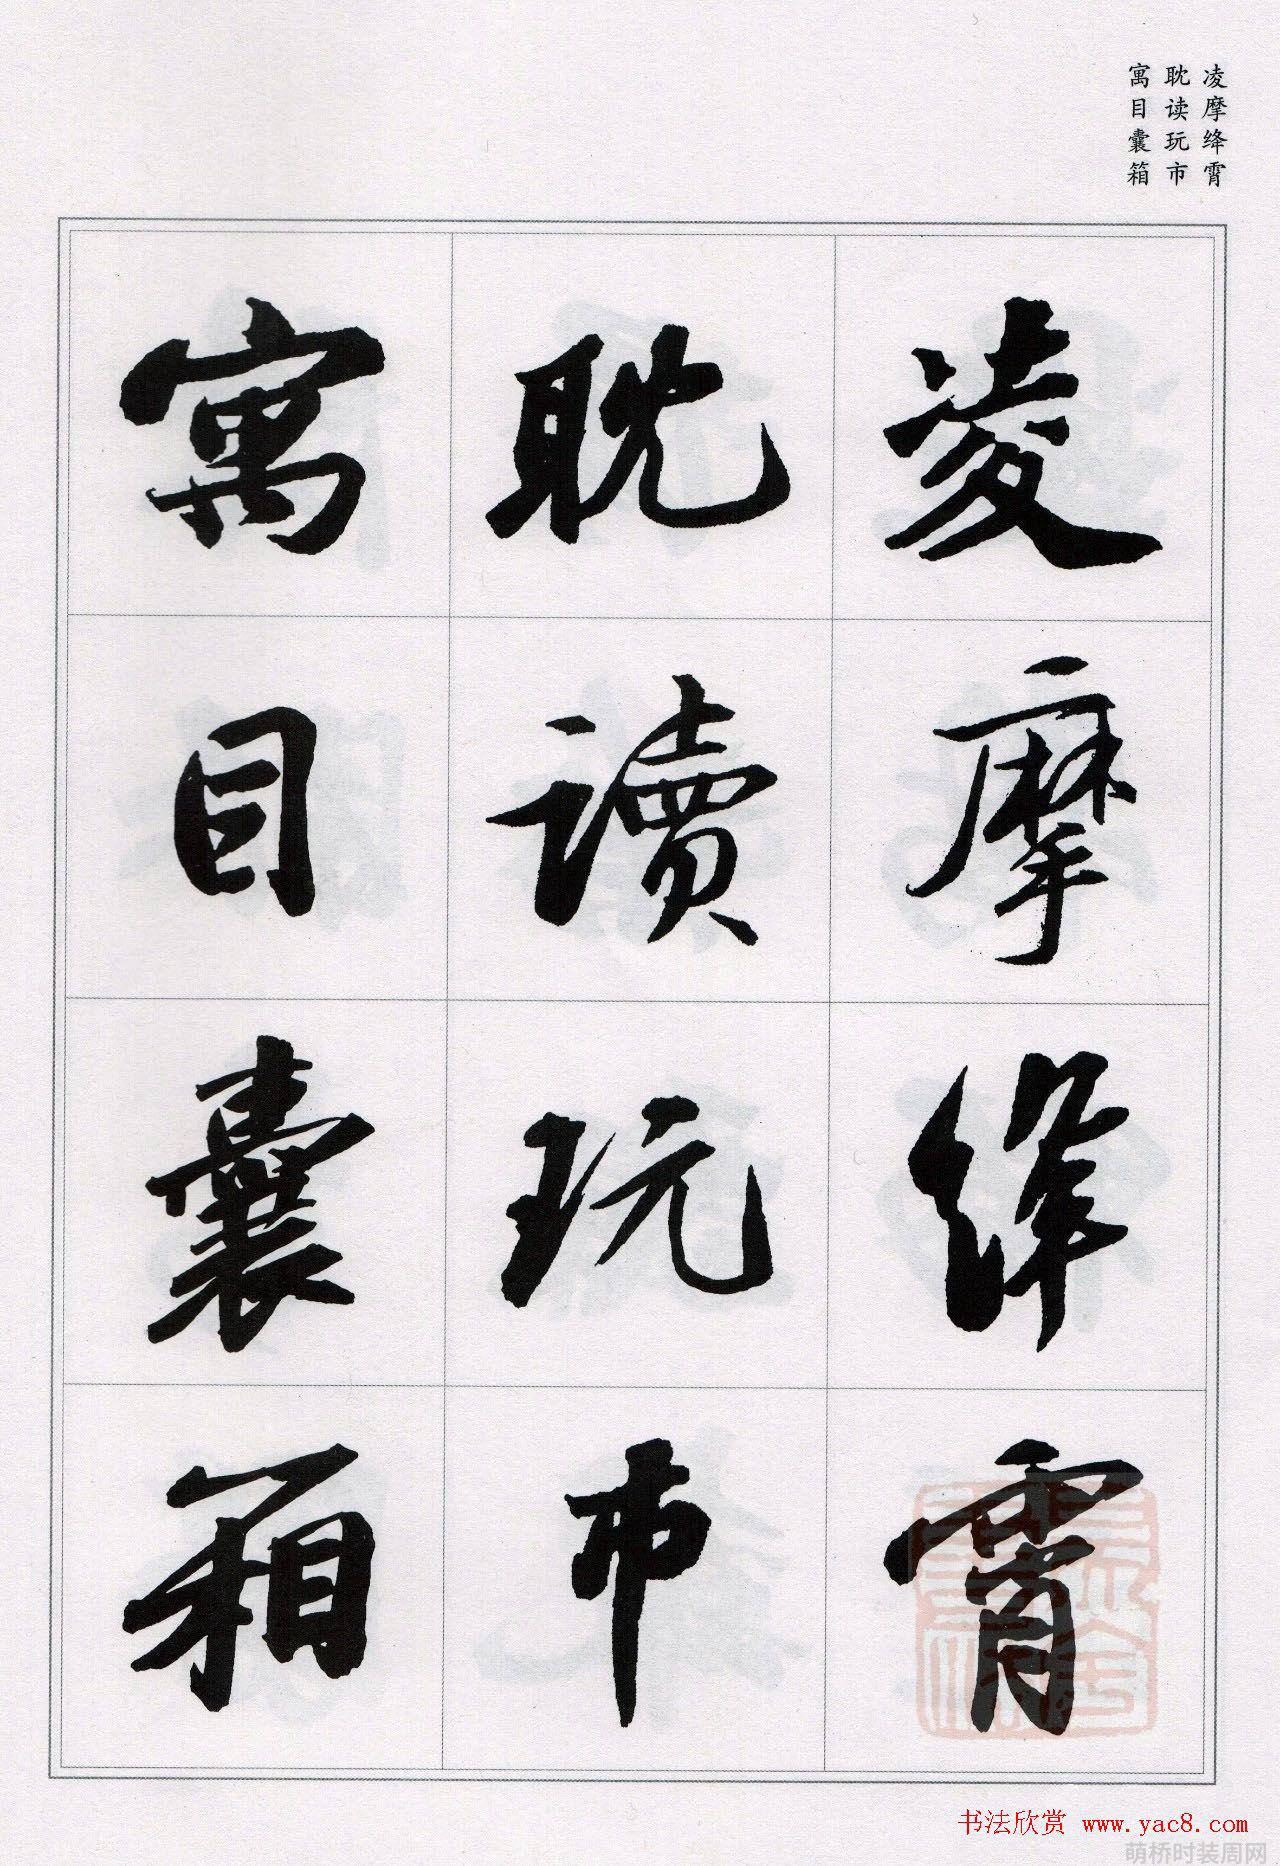 凌摩绛霄
耽读玩市
寓目囊箱
凌摩絳霄
耽讀玩市
寓目囊箱
书法欣赏 www.yac8.com
萌桥时装周网